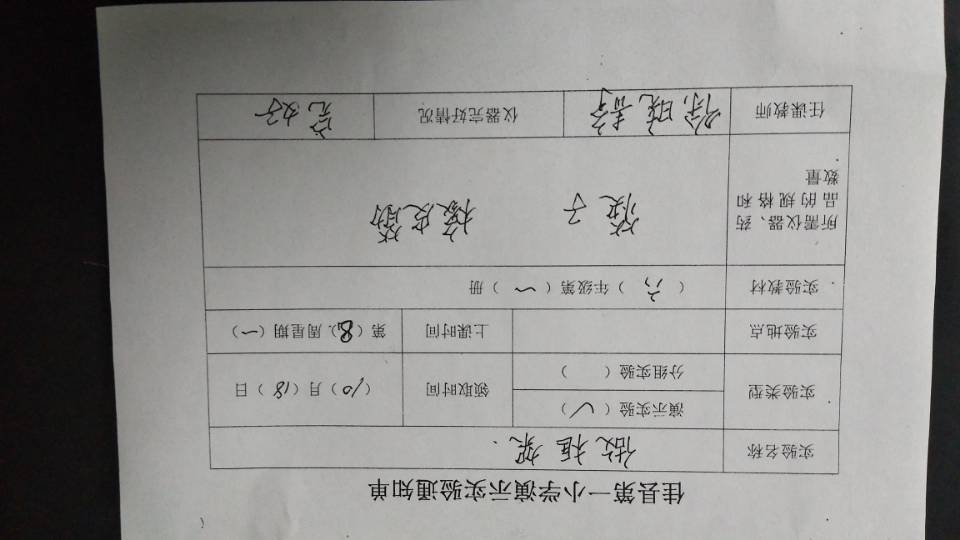 佳县第一小学演示实验通知单
实验名称 做框架.
实验类型 演示实验（√） 领取时间 （10）月（18）日
分组实验（ ）
实验地点 上课时间 第（8）周星期（一）
实验教材 （六）年级第（一）册
所需仪器、药品的规格和数量 筷子 橡皮筋
任课教师 仪器完好情况 完好